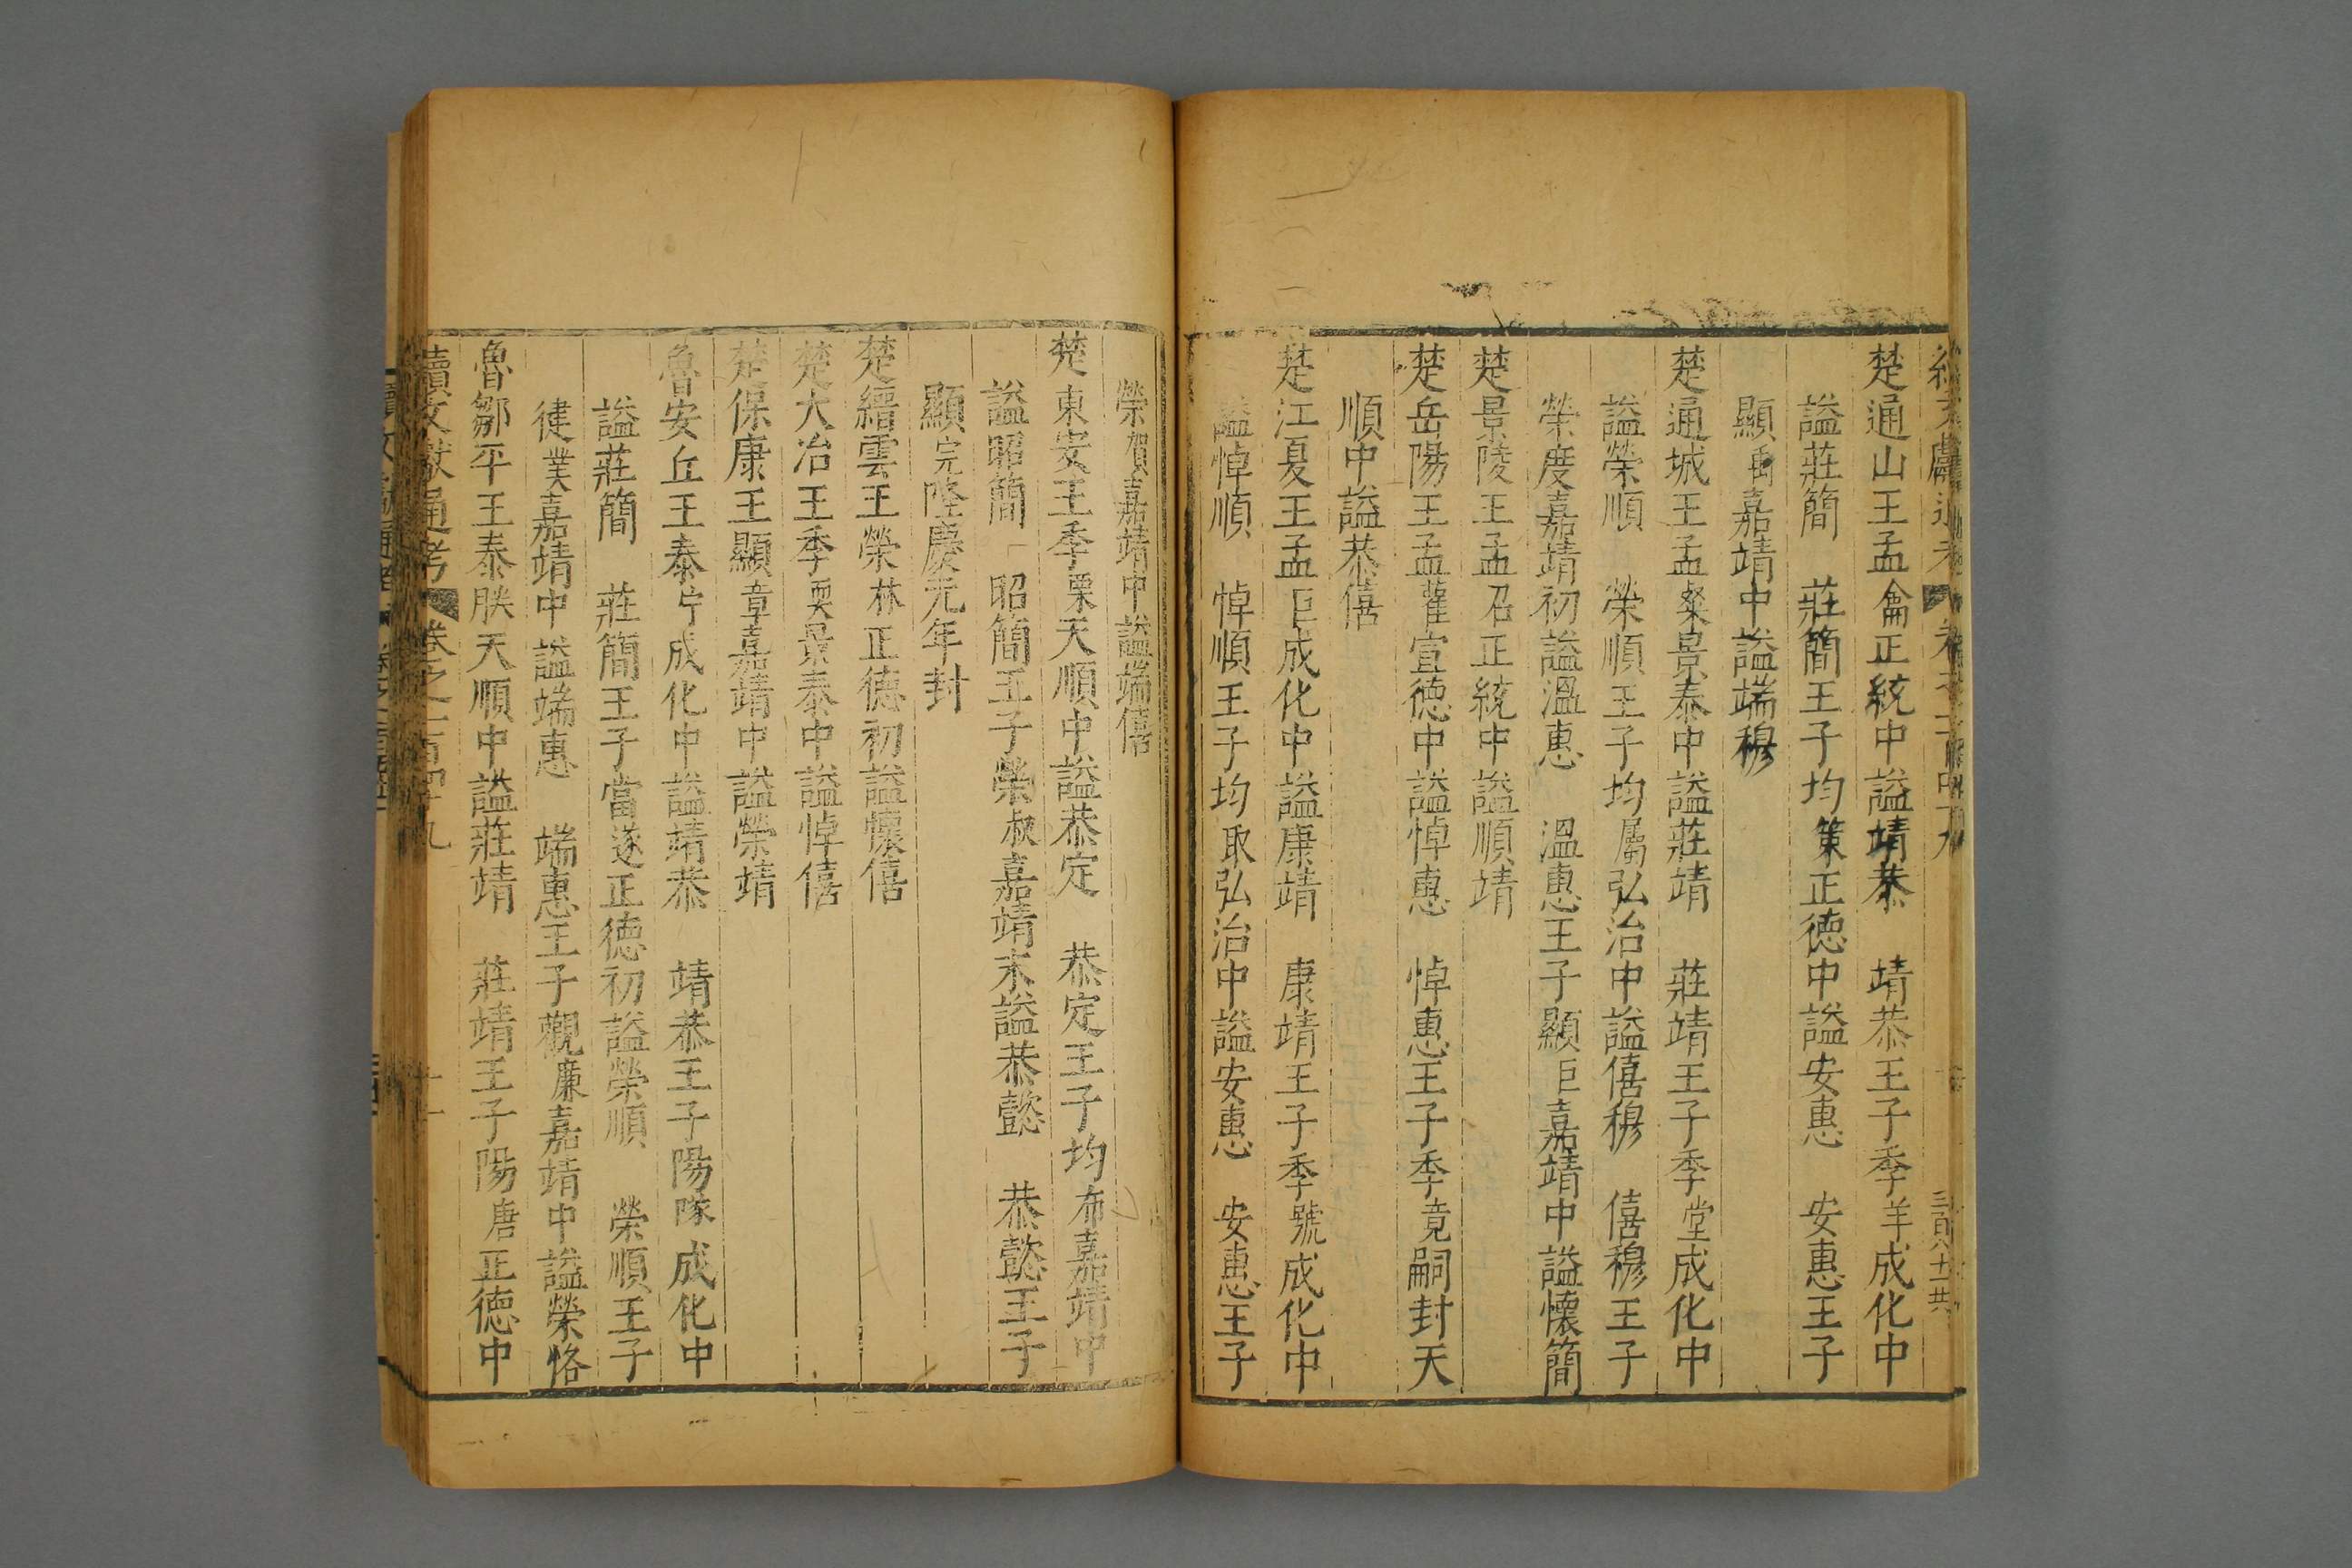 楚通山王孟龠正統中謚靖恭　靖恭王子季羊成化中
謚莊簡　莊簡王子均策正德中謚安惠　安惠王子
顯禹嘉靖中謚端穆
楚通城王孟粲景泰中謚莊靖　莊靖王子季堂成化中
謚榮順　榮順王子均屬弘治中謚僖穆　僖穆王子
榮度嘉靖初謚溫惠　溫惠王子顯巨嘉靖中謚懷簡
楚景陵王孟召正統中謚順靖
楚岳陽王孟雚宣德中謚悼惠　悼惠王子季竟嗣封天
順中謚恭僖
楚江夏王孟巨成化中謚康靖　康靖王子季號成化中
謚悼順　悼順王子均取弘治中謚安惠　安惠王子
榮賀嘉靖中謚端僖
楚東安王季栗天順中謚恭定　恭定王子均布嘉靖中
謚昭簡　昭簡王子榮叔嘉靖末謚恭懿　恭懿王子
顯完隆慶元年封
楚縉雲王榮林正德初謚懷僖
楚大冶王季耎景泰中謚悼僖
楚保康王顯章嘉靖中謚榮靖
魯安丘王泰㝉成化中謚靖恭　靖恭王子陽隊成化中
謚莊簡　莊簡王子當遂正德初謚榮順　榮順王子
健菐嘉靖中謚端惠　端惠王子觀廉嘉靖中謚榮恪
魯鄒平王泰朕天順中謚莊靖　莊靖王子陽唐正德中
續文獻通考　卷之二百四十九　十一